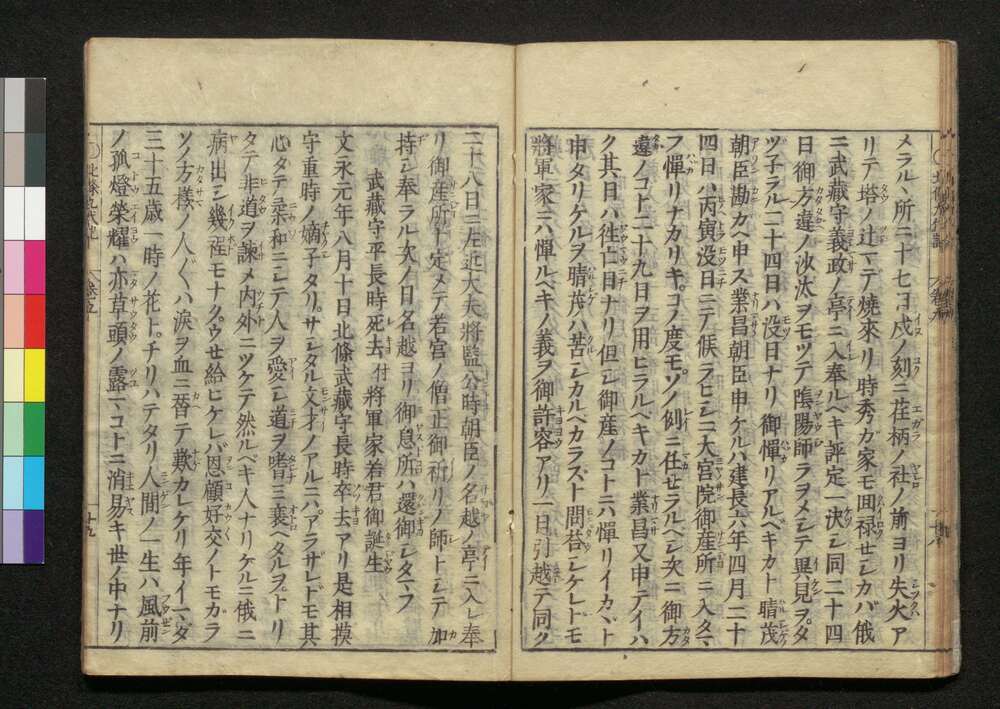 メラル、所ニ二十七ヨ戌ノ刻ニ荏柄ノ社ノ前ヨリ失火ア
リテ塔ノ辻マデ燒來リ時秀カ家モ囬禄せシカバ俄
ニ武藏守義政ノ亭ニ入奉ルベキ評定一決シ同二十四
日御方違ノ沙汰ヲモツテ陰陽師ラヲメシテ異見ヲタ
ツ子ラル二十四日ハ没日ナリ御憚リアルベキカト晴茂
朝臣勘カヘ申ス業昌朝臣申ケルハ建長六年四月二十
四日ハ丙寅没日ニテ候ラヒシニ大宮院御産所ニ入タマ
フ憚リナカリキコノ度モソノ例ニ任せラルベシ次ニ御方
違ノコト二十九日ヲ用ヒラルベキカト業昌又申テイハ
ク其日ハ徃亡日ナリ但シ御産ノコトニハ憚リイカヾト
申タリケルヲ晴茂ハ苦シカルベカラズト問荅シケレドモ
將軍家ニハ憚ルベキノ義ヲ御許容アリ一日引越テ同ク
二十八日ニ左近大夫將監公時朝臣ノ名越ノ亭ニ入レ奉
リ御産所ト定メテ若宮ノ僧正御祈リノ師トシテ加
持シ奉ラル次ノ日名越ヨリ御息所ハ還御シタマフ
武藏守平長時死去付將軍家若君御誕生
文永元年八月十日北條武藏守長時卒去アリ是相摸
守重時ノ嫡子タリサシタル文才ノアルニハアラザレドモ其
心タテ柔和ニシテ人ヲ愛シ道ヲ嗜ミ衰ヘタルヲトリ
タテ非道ヲ諫メ内外ニツケテ然ルベキ人ナリケルニ俄ニ
病出シ幾程モナクウせ給ヒケレバ恩顧好交ノトモガラ
ソノ方樣ノ人〲ハ涙ヲ血ニ替テ歎カレケリ年イマダ
三十五歳一時ノ花トチリハテタリ人間ノ一生ハ風前
ノ孤燈榮耀ハ亦草頭ノ露マコトニ消易キ世ノ中ナリ